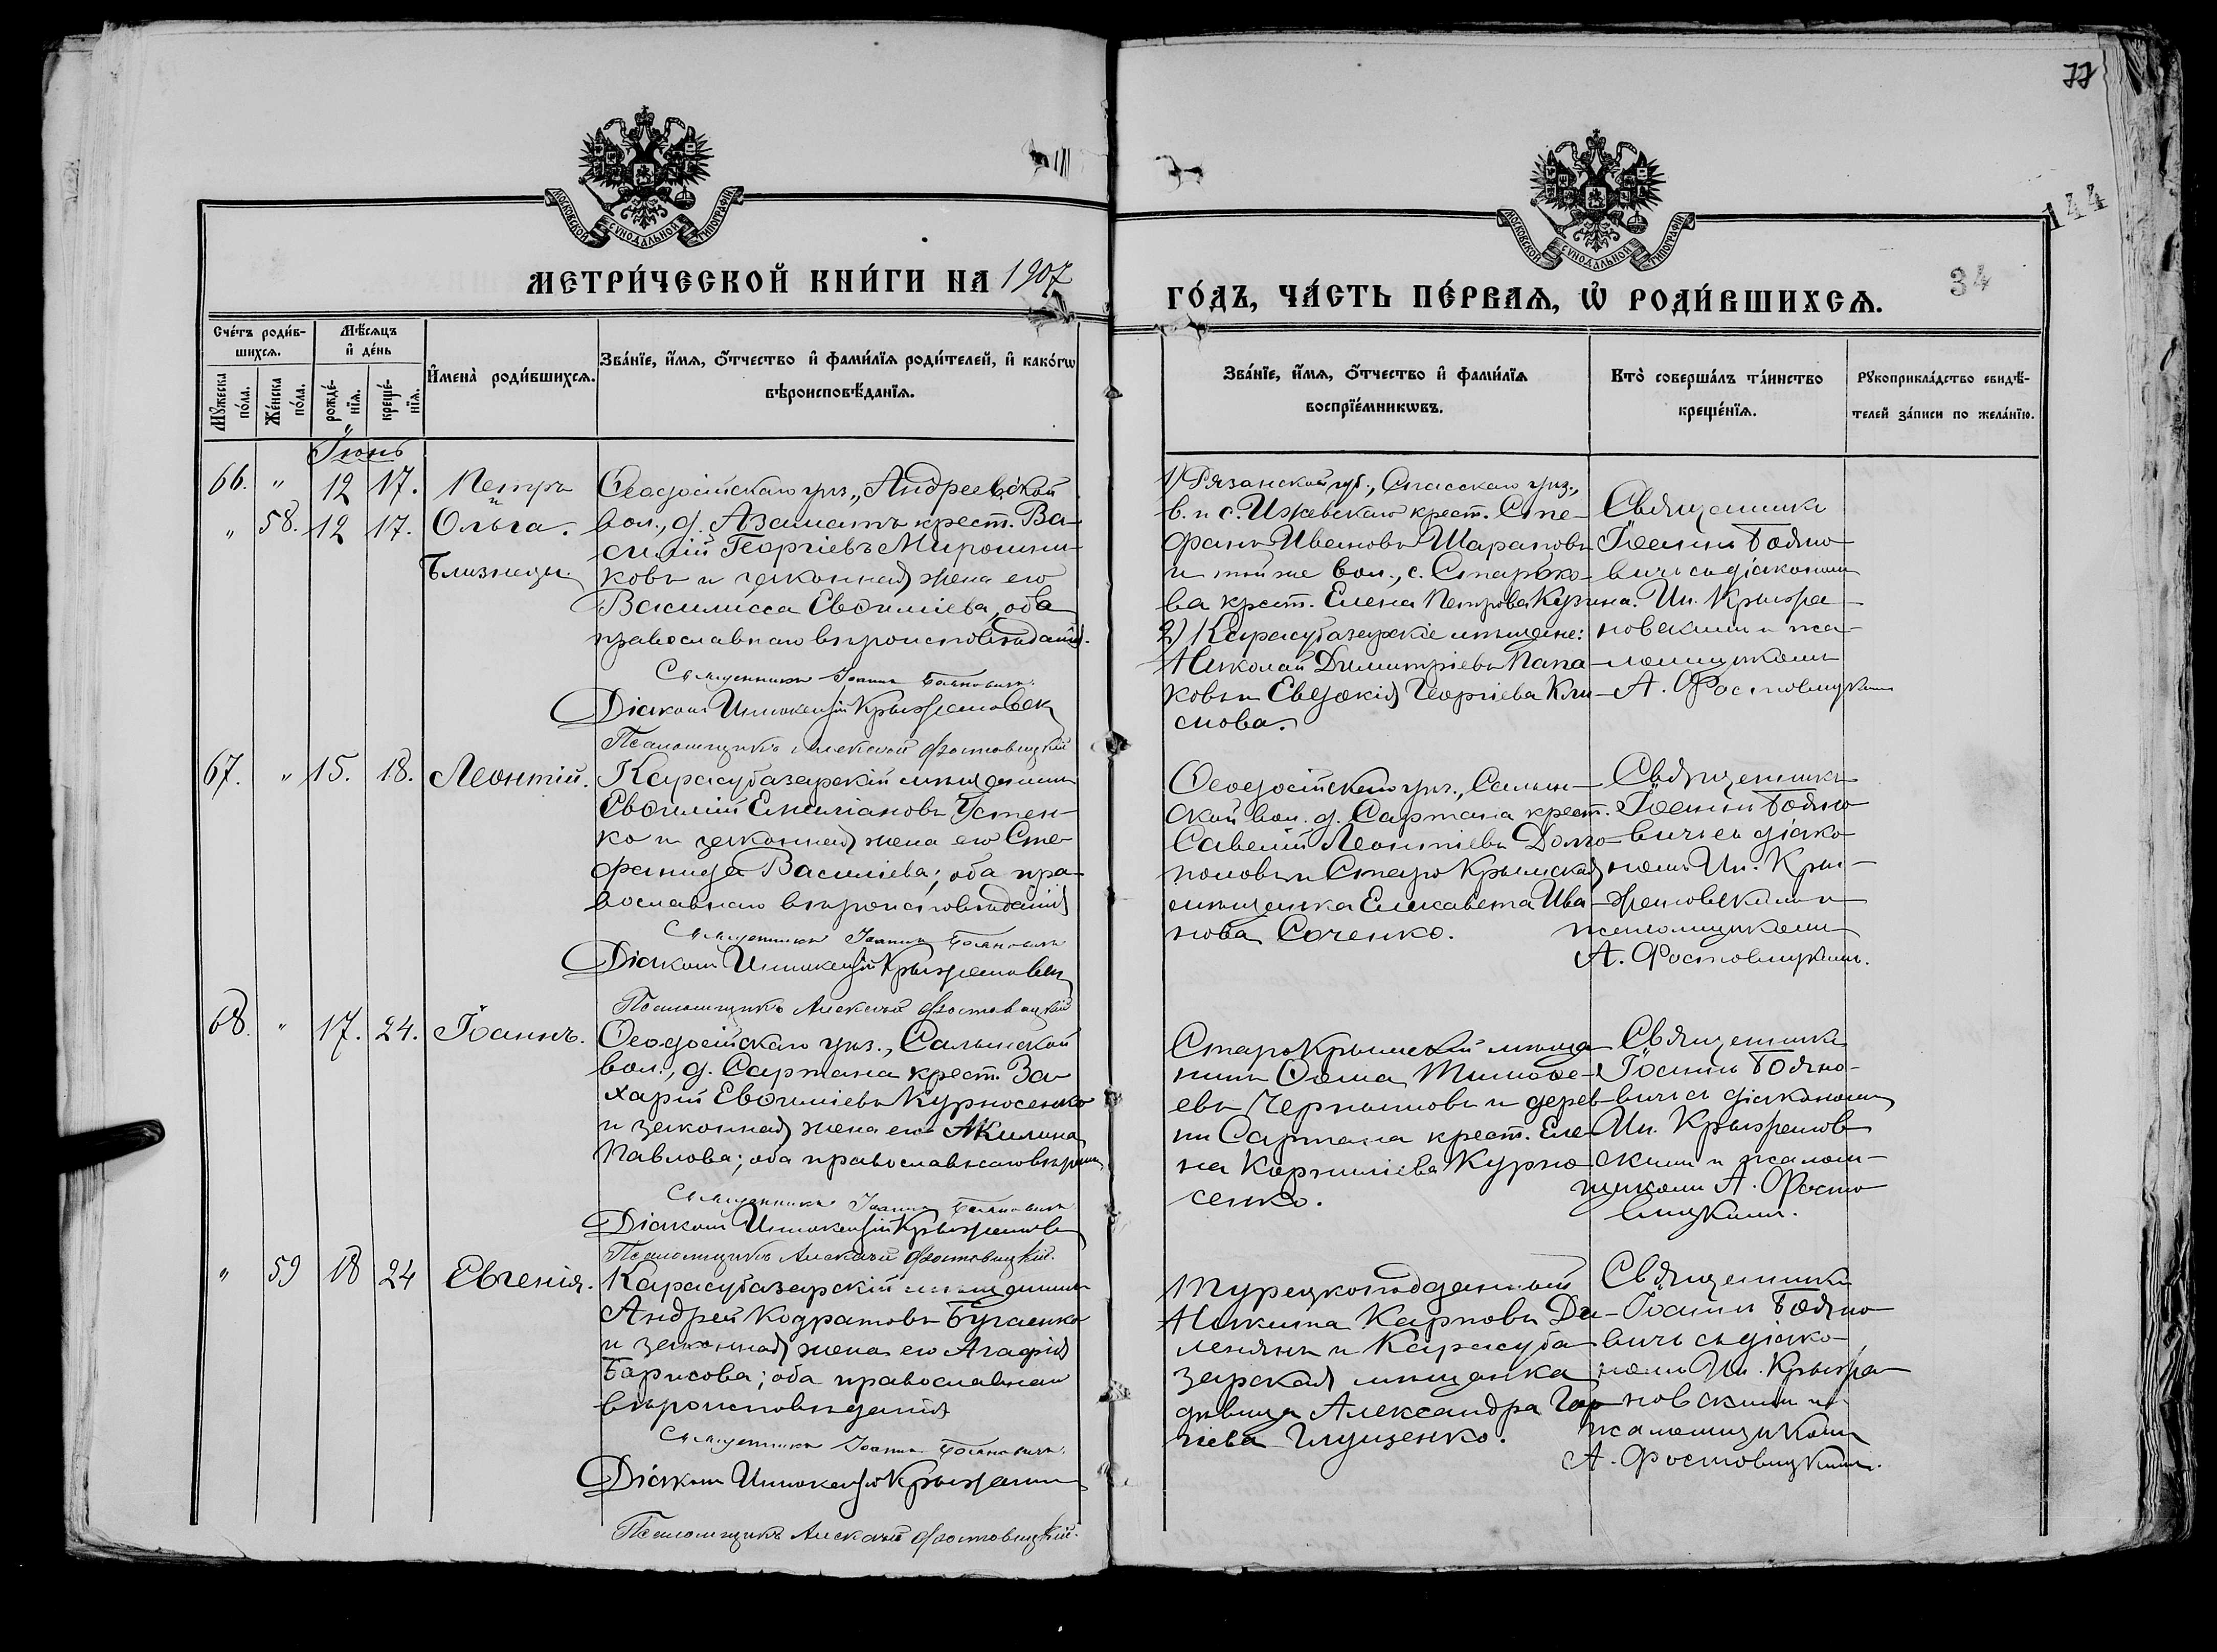 77
144
34
МОСКОВСКОЙ СѴНОДАЛЬНОЙ ТИПОГРАФІИ
МОСКОВСКОЙ СѴНОДАЛЬНОЙ ТИПОГРАФІИ
МЕТРИ́ЧЕСКОЙ КНИ́ГИ НА 1907
ГО́ДЪ, ЧА́СТЬ ПЕ́РВАѦ, Ѡ҆ РОДИ́ВШИХСѦ.
Сче́тъ роди́в-
шихсѧ.
Мѣ́сѧцъ
и҆ де́нь
Мꙋ́жеска
по́ла.
Же́нска
по́ла.
рожде́-
нїѧ.
креще́-
нїѧ.
И҆мена̀ роди́вшихсѧ.
Зва́нїе, и҆́мѧ, ѻ҆́тчество и҆ фами́лїѧ роди́телей, и҆ како́гѡ
вѣроисповѣ́данїѧ.
Зва́нїе, и҆́мѧ, ѻ҆́тчество и҆ фами́лїѧ
воспрїе́мникѡвъ.
Кто̀ соверша́лъ та́инство
креще́нїѧ.
Рꙋкоприкла́дство свидѣ́-
телей за́писи по жела́нїю.
Іюнь
66. " 12 17. Петръ
и
" 58. 12 17. Ольга.
Близнецы.
Ѳеодосійскаго уѣз., Андреевской
вол., д. Азаматъ крест. Ва-
силій Георгіевъ Мирошни-
ковъ и законная жена его
Василисса Евѳиміева, оба
православнаго вѣроисповѣданія.
Священникъ Іоаннъ Бояновичъ.
Діаконъ Иннокентій Крыжановск
Псаломщикъ Алексѣй Фростовицкій
1) Рязанской губ., Спасскаго уѣз.,
в. и с. Ижевскаго крест. Сте-
фанъ Ивановъ Шараповъ
и той же вол., с. Старько-
ва крест. Елена Петрова Кузина.
2) Карасубазарскіе мѣщане:
Николай Димитріевъ Папа-
ковъ и Евдокія Георгіева Кли-
мова.
Священникъ
Іоаннъ Бояно-
вичъ съ діакономъ
Ин. Крыжа-
новскимъ и пса-
ломщикомъ
А. Фростовицкимъ
67. " 15. 18. Леонтій.
Карасубазарскій мѣщанинъ
Евѳимій Емиліановъ Устен-
ко и законная жена его Сте-
фанида Василіева; оба пра-
вославнаго вѣроисповѣданія
Священникъ Іоаннъ Бояновичъ
Діаконъ Иннокентій Крыжановск
Псаломщикъ Алексѣй Фростовицкій
Ѳеодосійскаго уѣз., Салын-
ской вол. д. Сартана крест.
Савелій Леонтіевъ Долго-
половъ и Старо Крымская
мѣщанка Елисавета Ива-
нова Соченко.
Священникъ
Іоаннъ Бояно-
вичъ съ діако-
номъ Ин. Кры-
жановскимъ и
псаломщикомъ
А. Фростовицкимъ.
68. " 17. 24. Іоаннъ.
Ѳеодосійскаго уѣз., Салынской
вол., д. Сартана крест. За-
харій Евѳиміевъ Курносенко
и законная жена его Акилина
Павлова; оба православнаго вѣроисп
Священникъ Іоаннъ Бояновичъ
Діаконъ Иннокентій Крыжановск
Псаломщикъ Алексѣй Фростовицкій.
Старокрымскій мѣща-
нинъ Ѳома Тимоѳе-
евъ Чернышовъ и дерев-
ни Сартана крест. Еле-
на Корниліева Курно-
сенко.
Священникъ
Іоаннъ Бояно-
вичъ съ діакономъ
Ин. Крыжанов-
скимъ и псалом-
щикомъ А. Фросто-
вицкимъ.
" 59 18 24 Евгенія.
Карасубазарскій мѣщанинъ
Андрей Кодратовъ Бугаенко
и законная жена его Агафія
Борисова; оба православнаго
вѣроисповѣданія
Священникъ Іоаннъ Бояновичъ.
Діаконъ Иннокентій Крыжанов
Псаломщикъ Алексѣй Фростовицкій.
Турецкоподданный
Никита Карповъ Ди-
ленянъ и Карасуба-
зарская мѣщанка
дѣвица Александра Геор-
гіева Глущенко.
Священникъ
Іоаннъ Бояно-
вичъ съ діако-
номъ Ин. Крыжа-
новскимъ и
псаломщикомъ
А. Фростовицкимъ.